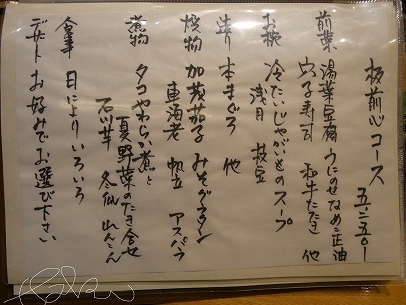 板前心コース 五、二五〇-
前菜 湯葉豆腐 うにのせなめこ正油
穴子寿司 和牛たたき 他
お椀 冷たいじゃがいものスープ
浅月 枝豆
造り 本まぐろ 他
焼物 加茂茄子 みそグラタン
車海老 帆立 アスパラ
煮物 タコやわらか煮と
夏野菜のたき合せ
石川芋 冬瓜 れんこん
食事 日によりいろいろ
デザート お好みでお選び下さい